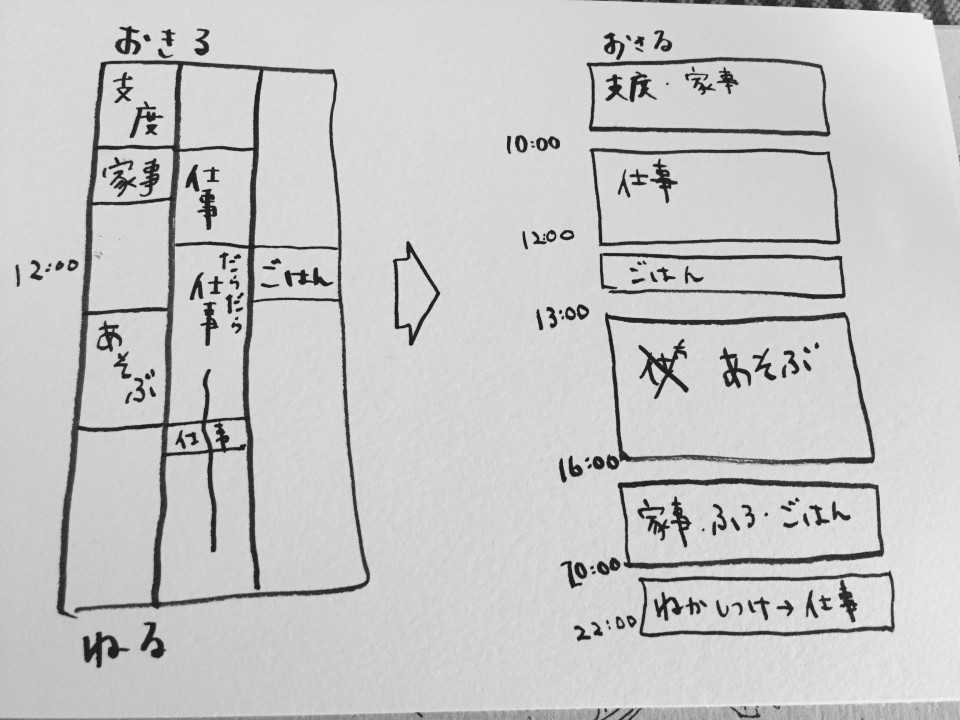 おきる
支度
家事
仕事
12:00
だらだら
仕事
ごはん
あそぶ
仕事
ねる
おきる
支度・家事
10:00
仕事
12:00
ごはん
13:00
あそぶ
16:00
家事.ふろ・ごはん
20:00
22:00
ねかしつけ→仕事